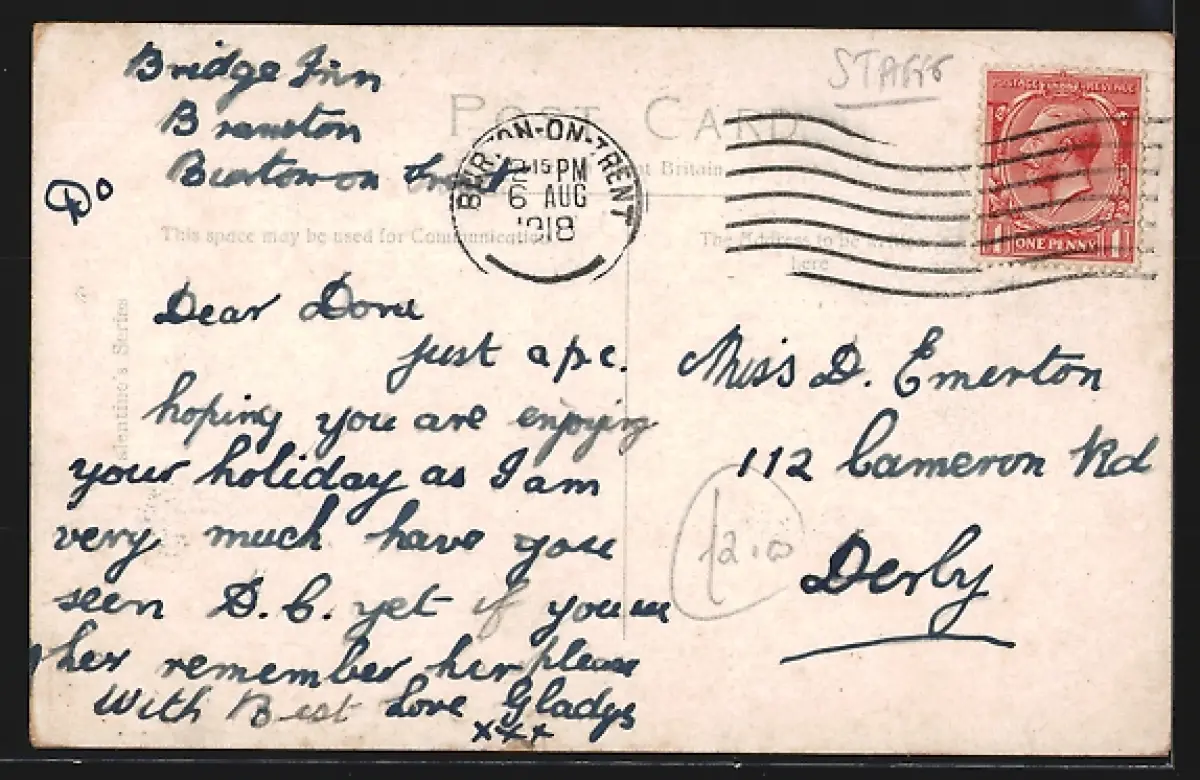 Bridge Inn
Branston
Burton on Trent
Do
STAGG
POST CARD
t Britain
BURTON-ON-TRENT
15 PM
6 AUG
1918
POSTAGE REVENUE
1 ONE PENNY 1
This space may be used for Communication
The Address to be
here
Valentine's Series
Dear Dora
just a p.c.
hoping you are enjoying
your holiday as I am
very much have you
seen D. C. yet if you
her remember her please
With Best Love Gladys
x x x
Miss D. Emerton
112 Cameron Rd
Derby
12.00